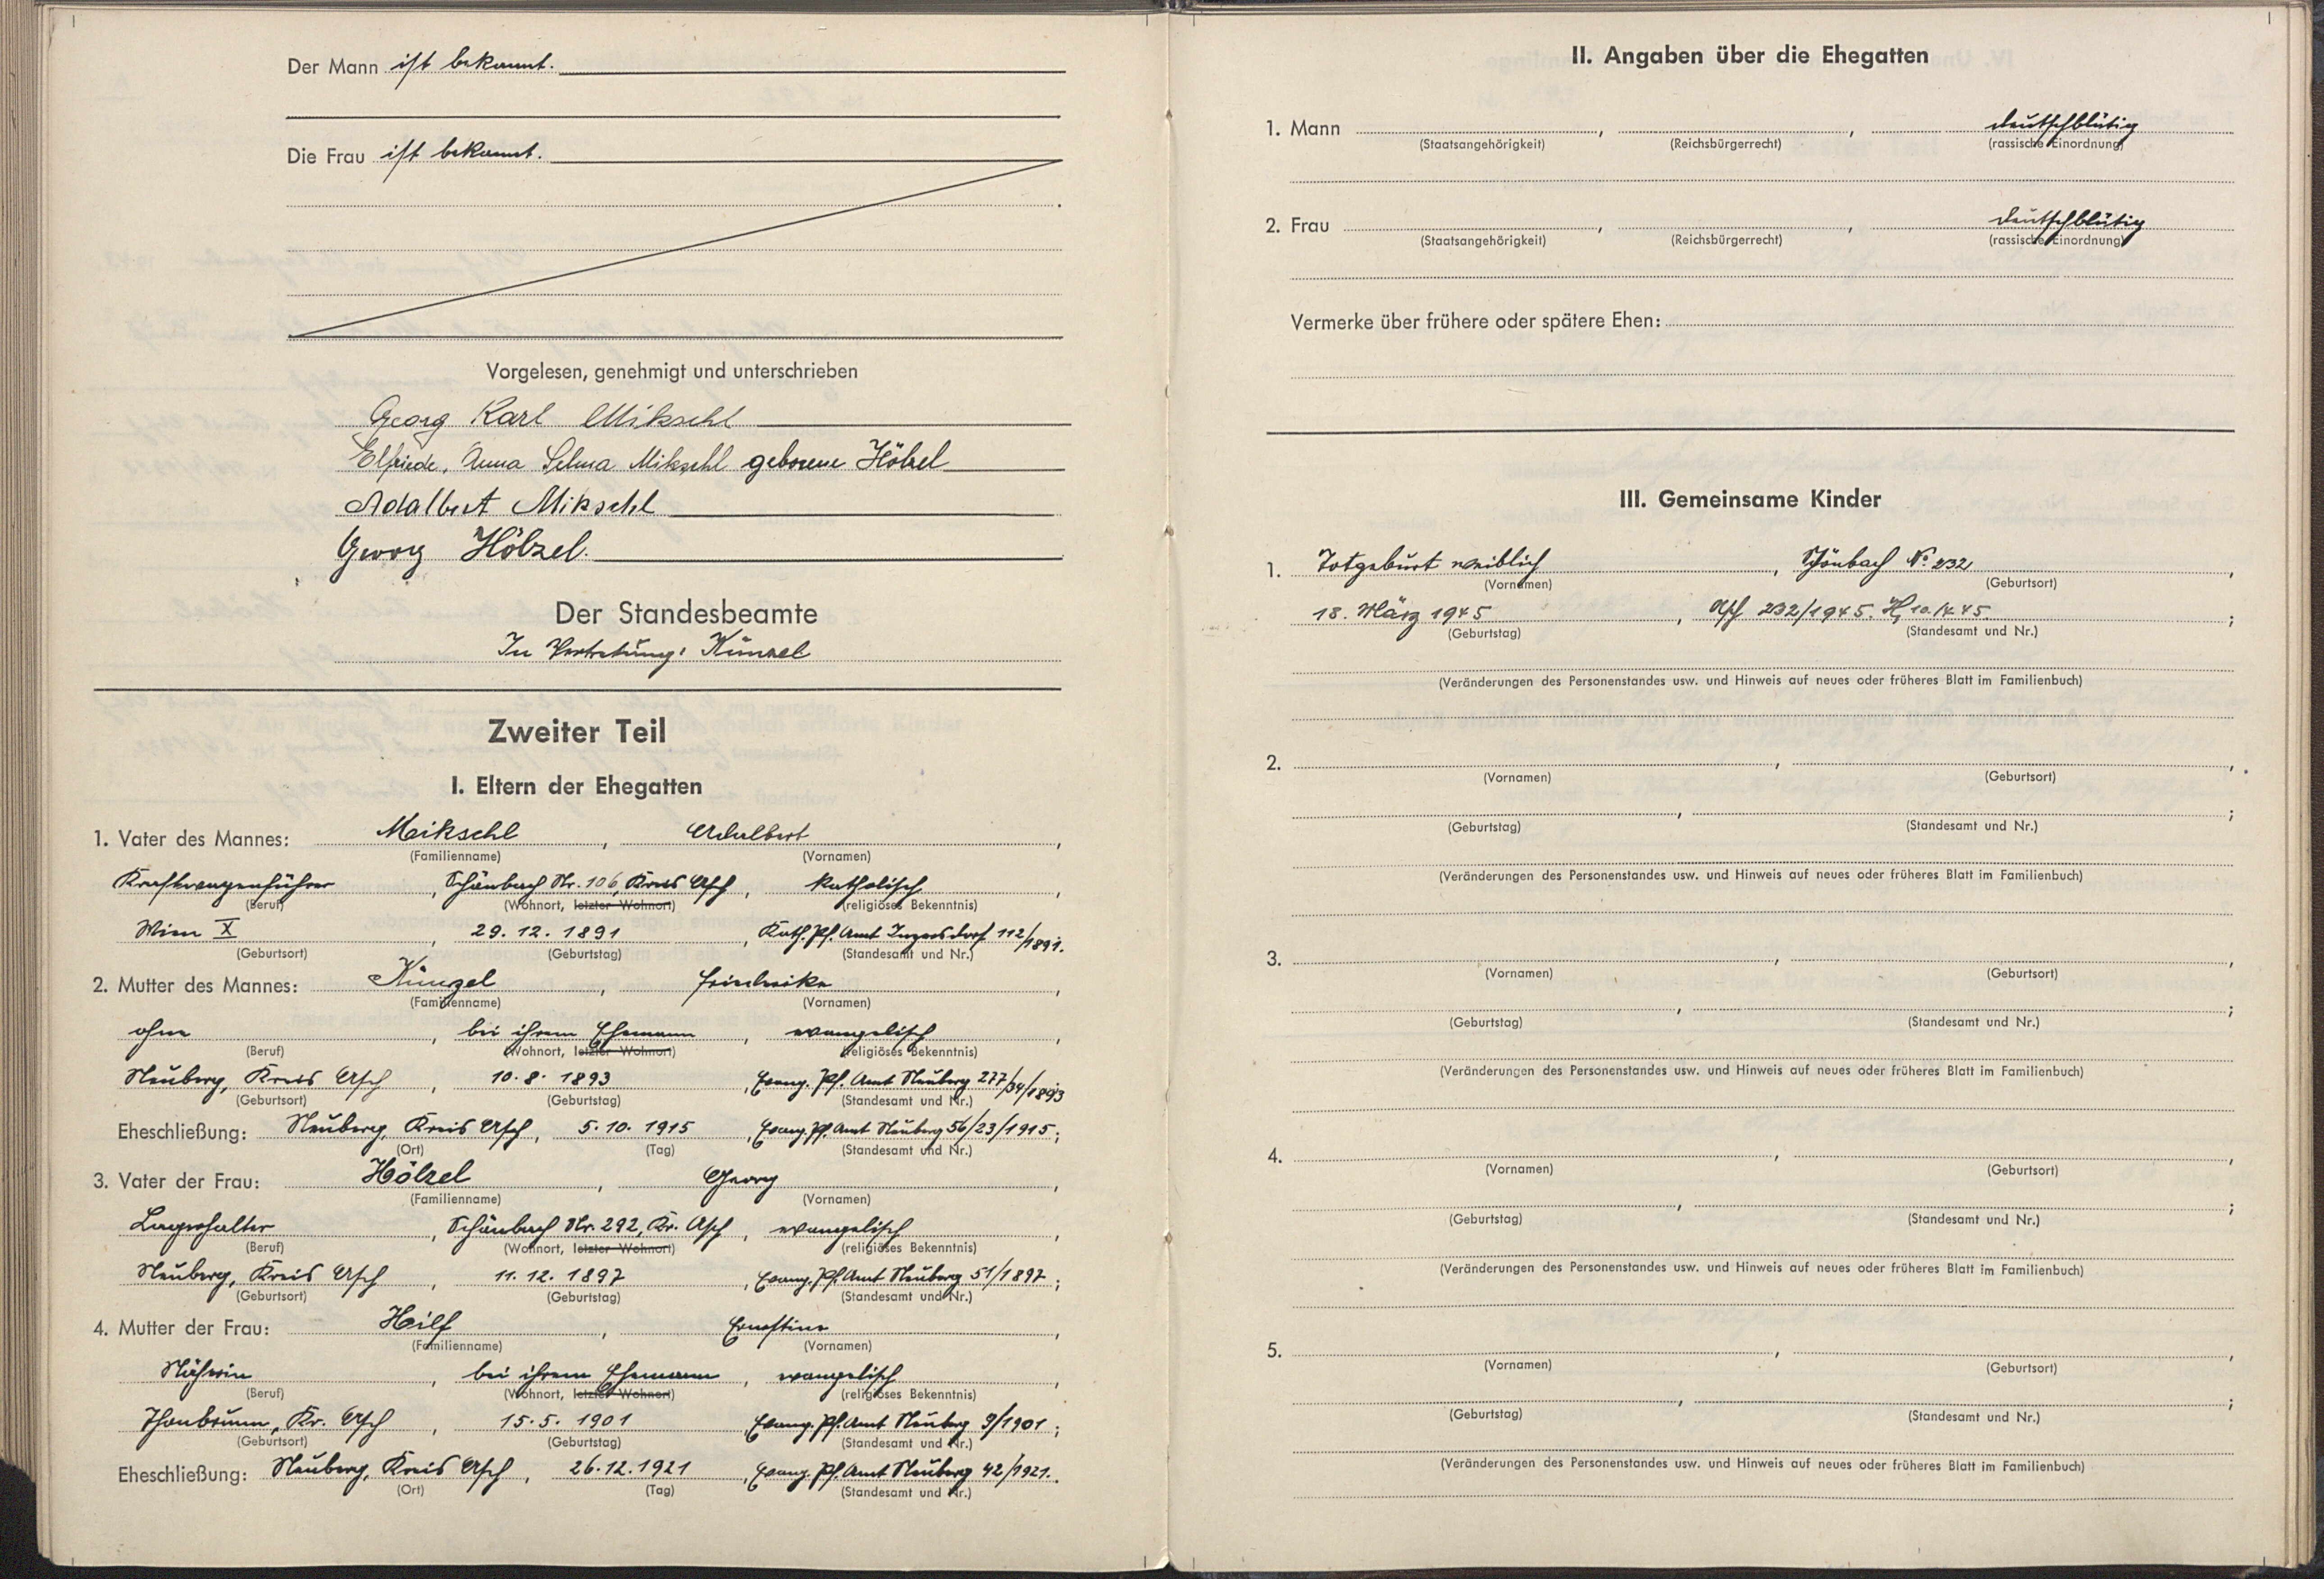 Der Mann ist bekannt.
Die Frau ist bekannt.
Vorgelesen, genehmigt und unterschrieben
Georg Karl Mikschl
Elfriede, Anna Selma Mikschl geborene Hölzel
Adalbert Mikschl
Georg Hölzel.
Der Standesbeamte
In Vertretung: Künzel
Zweiter Teil
I. Eltern der Ehegatten
1. Vater des Mannes: Meikschl, Adalbert,
(Familienname) (Vornamen)
Kraftwagenführer, Schönbach Nr. 106, Kreis Asch, katholisch,
(Beruf) (Wohnort, letzter Wohnort) (religiöses Bekenntnis)
Wien X, 29. 12. 1891, Kath. Pf. Amt Inzersdorf 112/1891.
(Geburtsort) (Geburtstag) (Standesamt und Nr.)
2. Mutter des Mannes: Künzel, Friederike,
(Familienname) (Vornamen)
ohne, bei ihrem Ehemann, evangelisch,
(Beruf) (Wohnort, letzter Wohnort) (religiöses Bekenntnis)
Neuberg, Kreis Asch, 10. 8. 1893, Evang. Pf. Amt Neuberg 277/34/1893
(Geburtsort) (Geburtstag) (Standesamt und Nr.)
Eheschließung: Neuberg, Kreis Asch, 5. 10. 1915, Evang. Pf. Amt Neuberg 56/23/1915;
(Ort) (Tag) (Standesamt und Nr.)
3. Vater der Frau: Hölzel, Georg,
(Familienname) (Vornamen)
Lagerhalter, Schönbach Nr. 292, Kr. Asch, evangelisch,
(Beruf) (Wohnort, letzter Wohnort) (religiöses Bekenntnis)
Neuberg, Kreis Asch, 11. 12. 1897, Evang. Pf. Amt Neuberg 51/1897;
(Geburtsort) (Geburtstag) (Standesamt und Nr.)
4. Mutter der Frau: Heilf, Ernestine,
(Familienname) (Vornamen)
Näherin, bei ihrem Ehemann, evangelisch,
(Beruf) (Wohnort, letzter Wohnort) (religiöses Bekenntnis)
Thonbrunn, Kr. Asch, 15. 5. 1901, Evang. Pf. Amt Neuberg 9/1901;
(Geburtsort) (Geburtstag) (Standesamt und Nr.)
Eheschließung: Neuberg, Kreis Asch, 26. 12. 1921, Evang. Pf. Amt Neuberg 42/1921.
(Ort) (Tag) (Standesamt und Nr.)
II. Angaben über die Ehegatten
1. Mann , , deutschblütig
(Staatsangehörigkeit) (Reichsbürgerrecht) (rassische Einordnung)
2. Frau , , deutschblütig
(Staatsangehörigkeit) (Reichsbürgerrecht) (rassische Einordnung)
Vermerke über frühere oder spätere Ehen:
III. Gemeinsame Kinder
1. Totgeburt weiblich, Schönbach No. 232,
(Vornamen) (Geburtsort)
18. März 1945, Asch 232/1945. 10./4.45.;
(Geburtstag) (Standesamt und Nr.)
(Veränderungen des Personenstandes usw. und Hinweis auf neues oder früheres Blatt im Familienbuch)
2. , ,
(Vornamen) (Geburtsort)
, ;
(Geburtstag) (Standesamt und Nr.)
(Veränderungen des Personenstandes usw. und Hinweis auf neues oder früheres Blatt im Familienbuch)
3. , ,
(Vornamen) (Geburtsort)
, ;
(Geburtstag) (Standesamt und Nr.)
(Veränderungen des Personenstandes usw. und Hinweis auf neues oder früheres Blatt im Familienbuch)
4. , ,
(Vornamen) (Geburtsort)
, ;
(Geburtstag) (Standesamt und Nr.)
(Veränderungen des Personenstandes usw. und Hinweis auf neues oder früheres Blatt im Familienbuch)
5. , ,
(Vornamen) (Geburtsort)
, ;
(Geburtstag) (Standesamt und Nr.)
(Veränderungen des Personenstandes usw. und Hinweis auf neues oder früheres Blatt im Familienbuch)